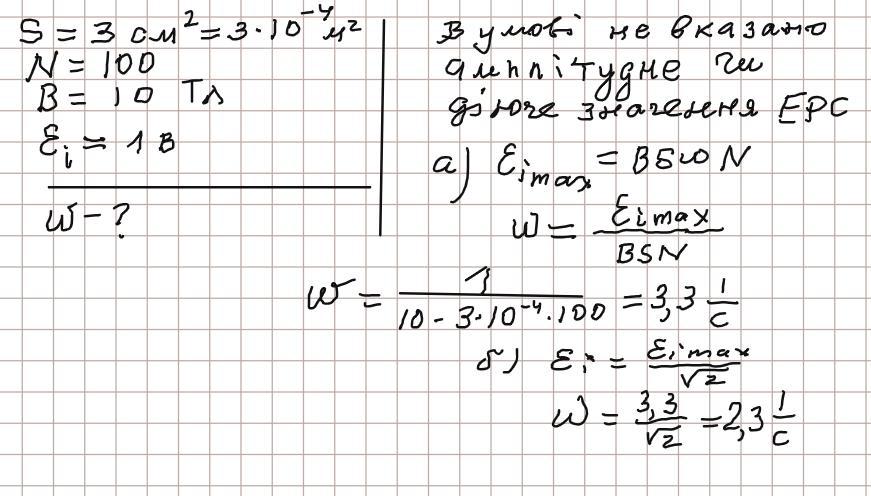 S = 3 см² = 3·10⁻⁴ м²
N = 100
B = 10 Тл
ℰᵢ = 1 В
W - ?
В умові не вказано
амплітудне чи
діюче значення ЕРС
а) ℰᵢ max = BSωN
W = ℰᵢ max / BSN
W = 1 / 10 - 3·10⁻⁴·100 = 3,3 1/с
б) ℰᵢ = ℰᵢ max / √2
W = 3,3 / √2 = 2,3 1/с